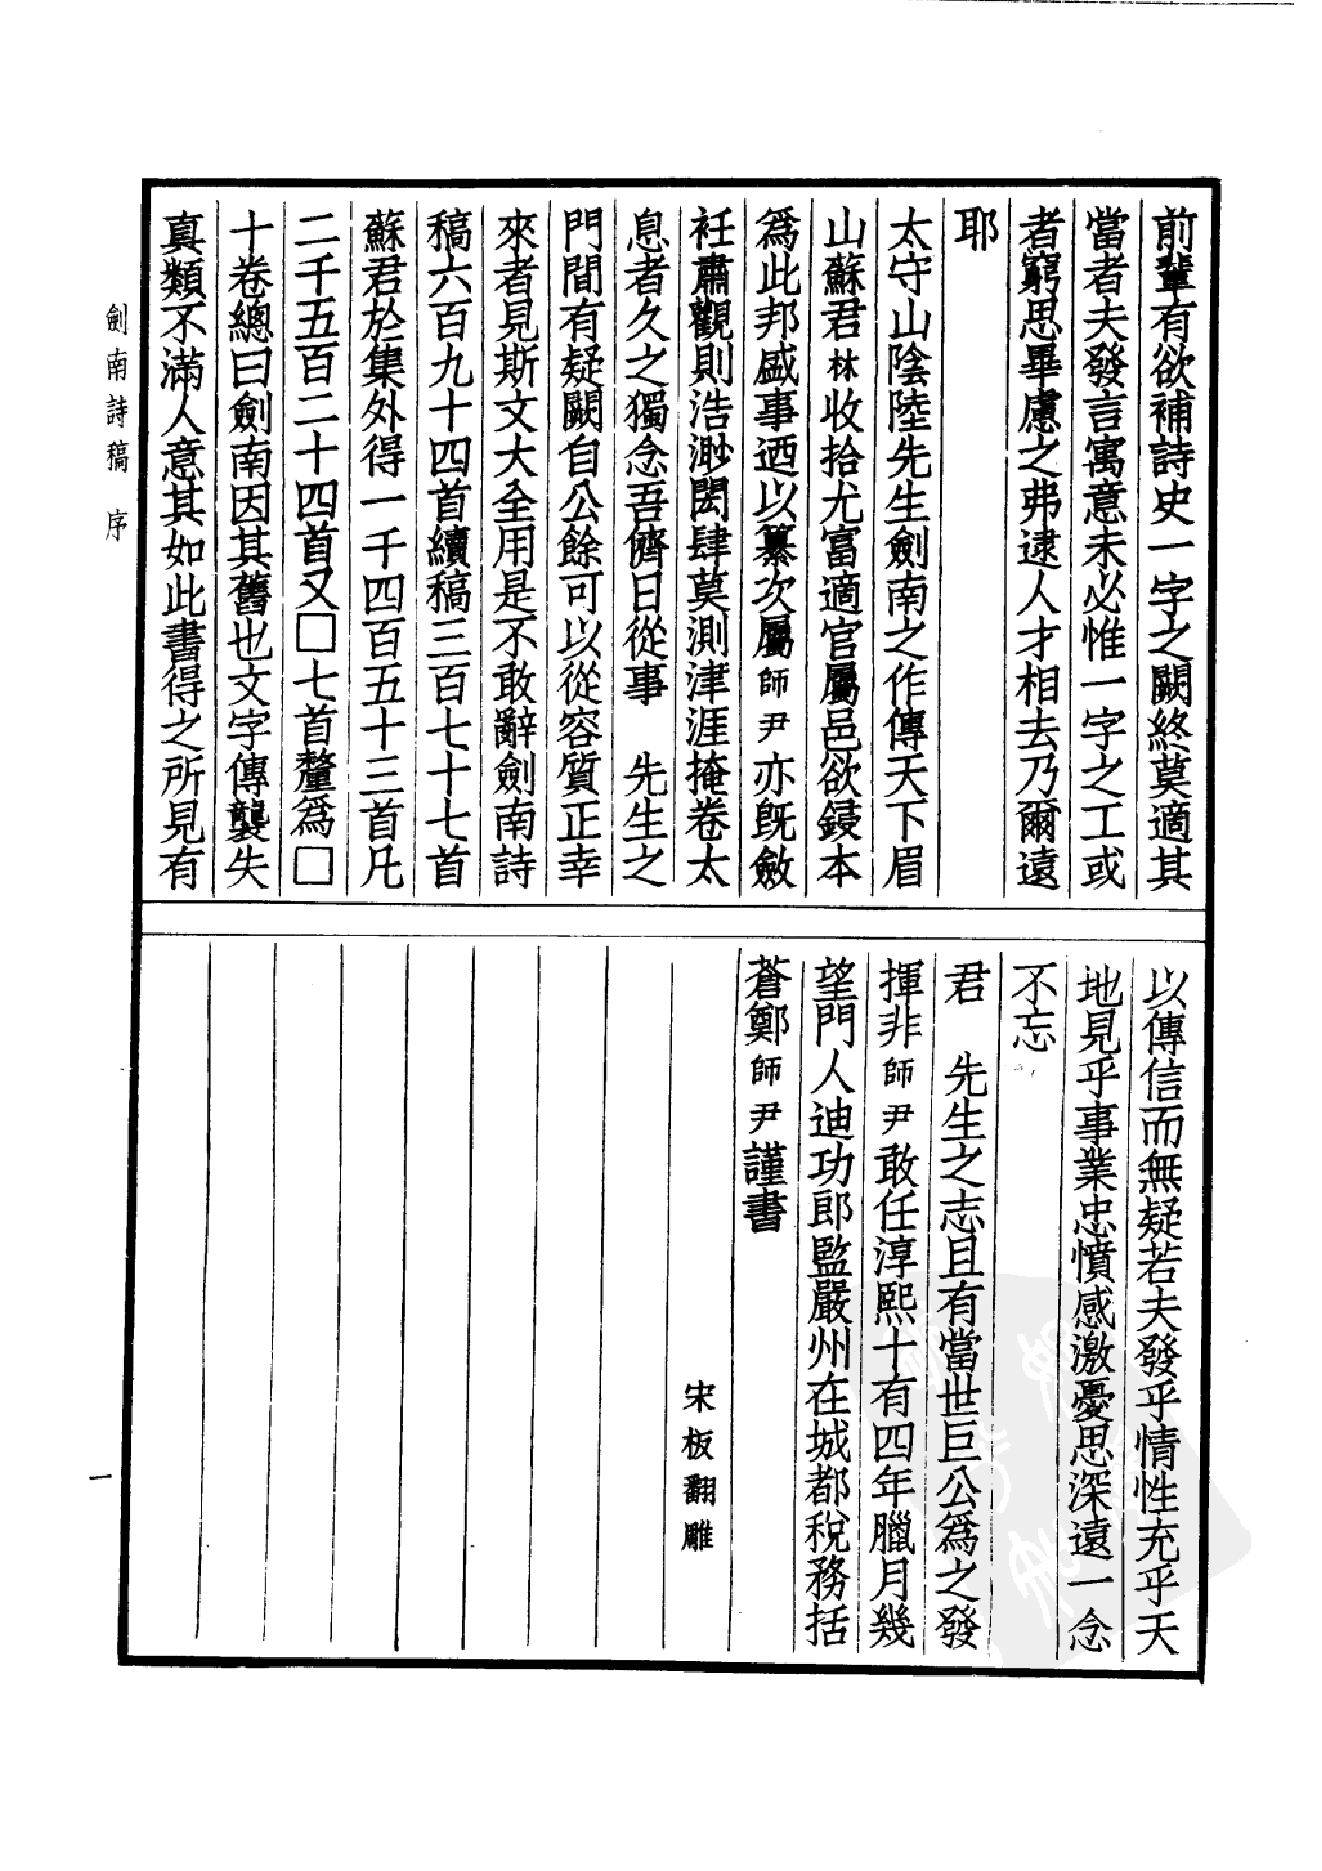 前輩有欲補詩史一字之闕終莫適其
當者夫發言寓意未必惟一字之工或
者窮思畢慮之弗逮人才相去乃爾遠
耶
太守山陰陸先生劍南之作傳天下眉
山蘇君林收拾尤富適官屬邑欲鋟本
爲此邦盛事迺以纂次屬師尹亦既斂
衽肅觀則浩渺閎肆莫測津涯掩卷太
息者久之獨念吾儕日從事　先生之
門間有疑闕自公餘可以從容質正幸
來者見斯文大全用是不敢辭劍南詩
稿六百九十四首續稿三百七十七首
蘇君於集外得一千四百五十三首凡
二千五百二十四首又□七首釐爲□
十卷總曰劍南因其舊也文字傳襲失
真類不滿人意其如此書得之所見有
以傳信而無疑若夫發乎情性充乎天
地見乎事業忠憤感激憂思深遠一念
不忘
君　先生之志且有當世巨公爲之發
揮非師尹敢任淳熙十有四年臘月幾
望門人迪功郎監嚴州在城都稅務括
蒼鄭師尹謹書
宋板翻雕
劍南詩稿 序
一